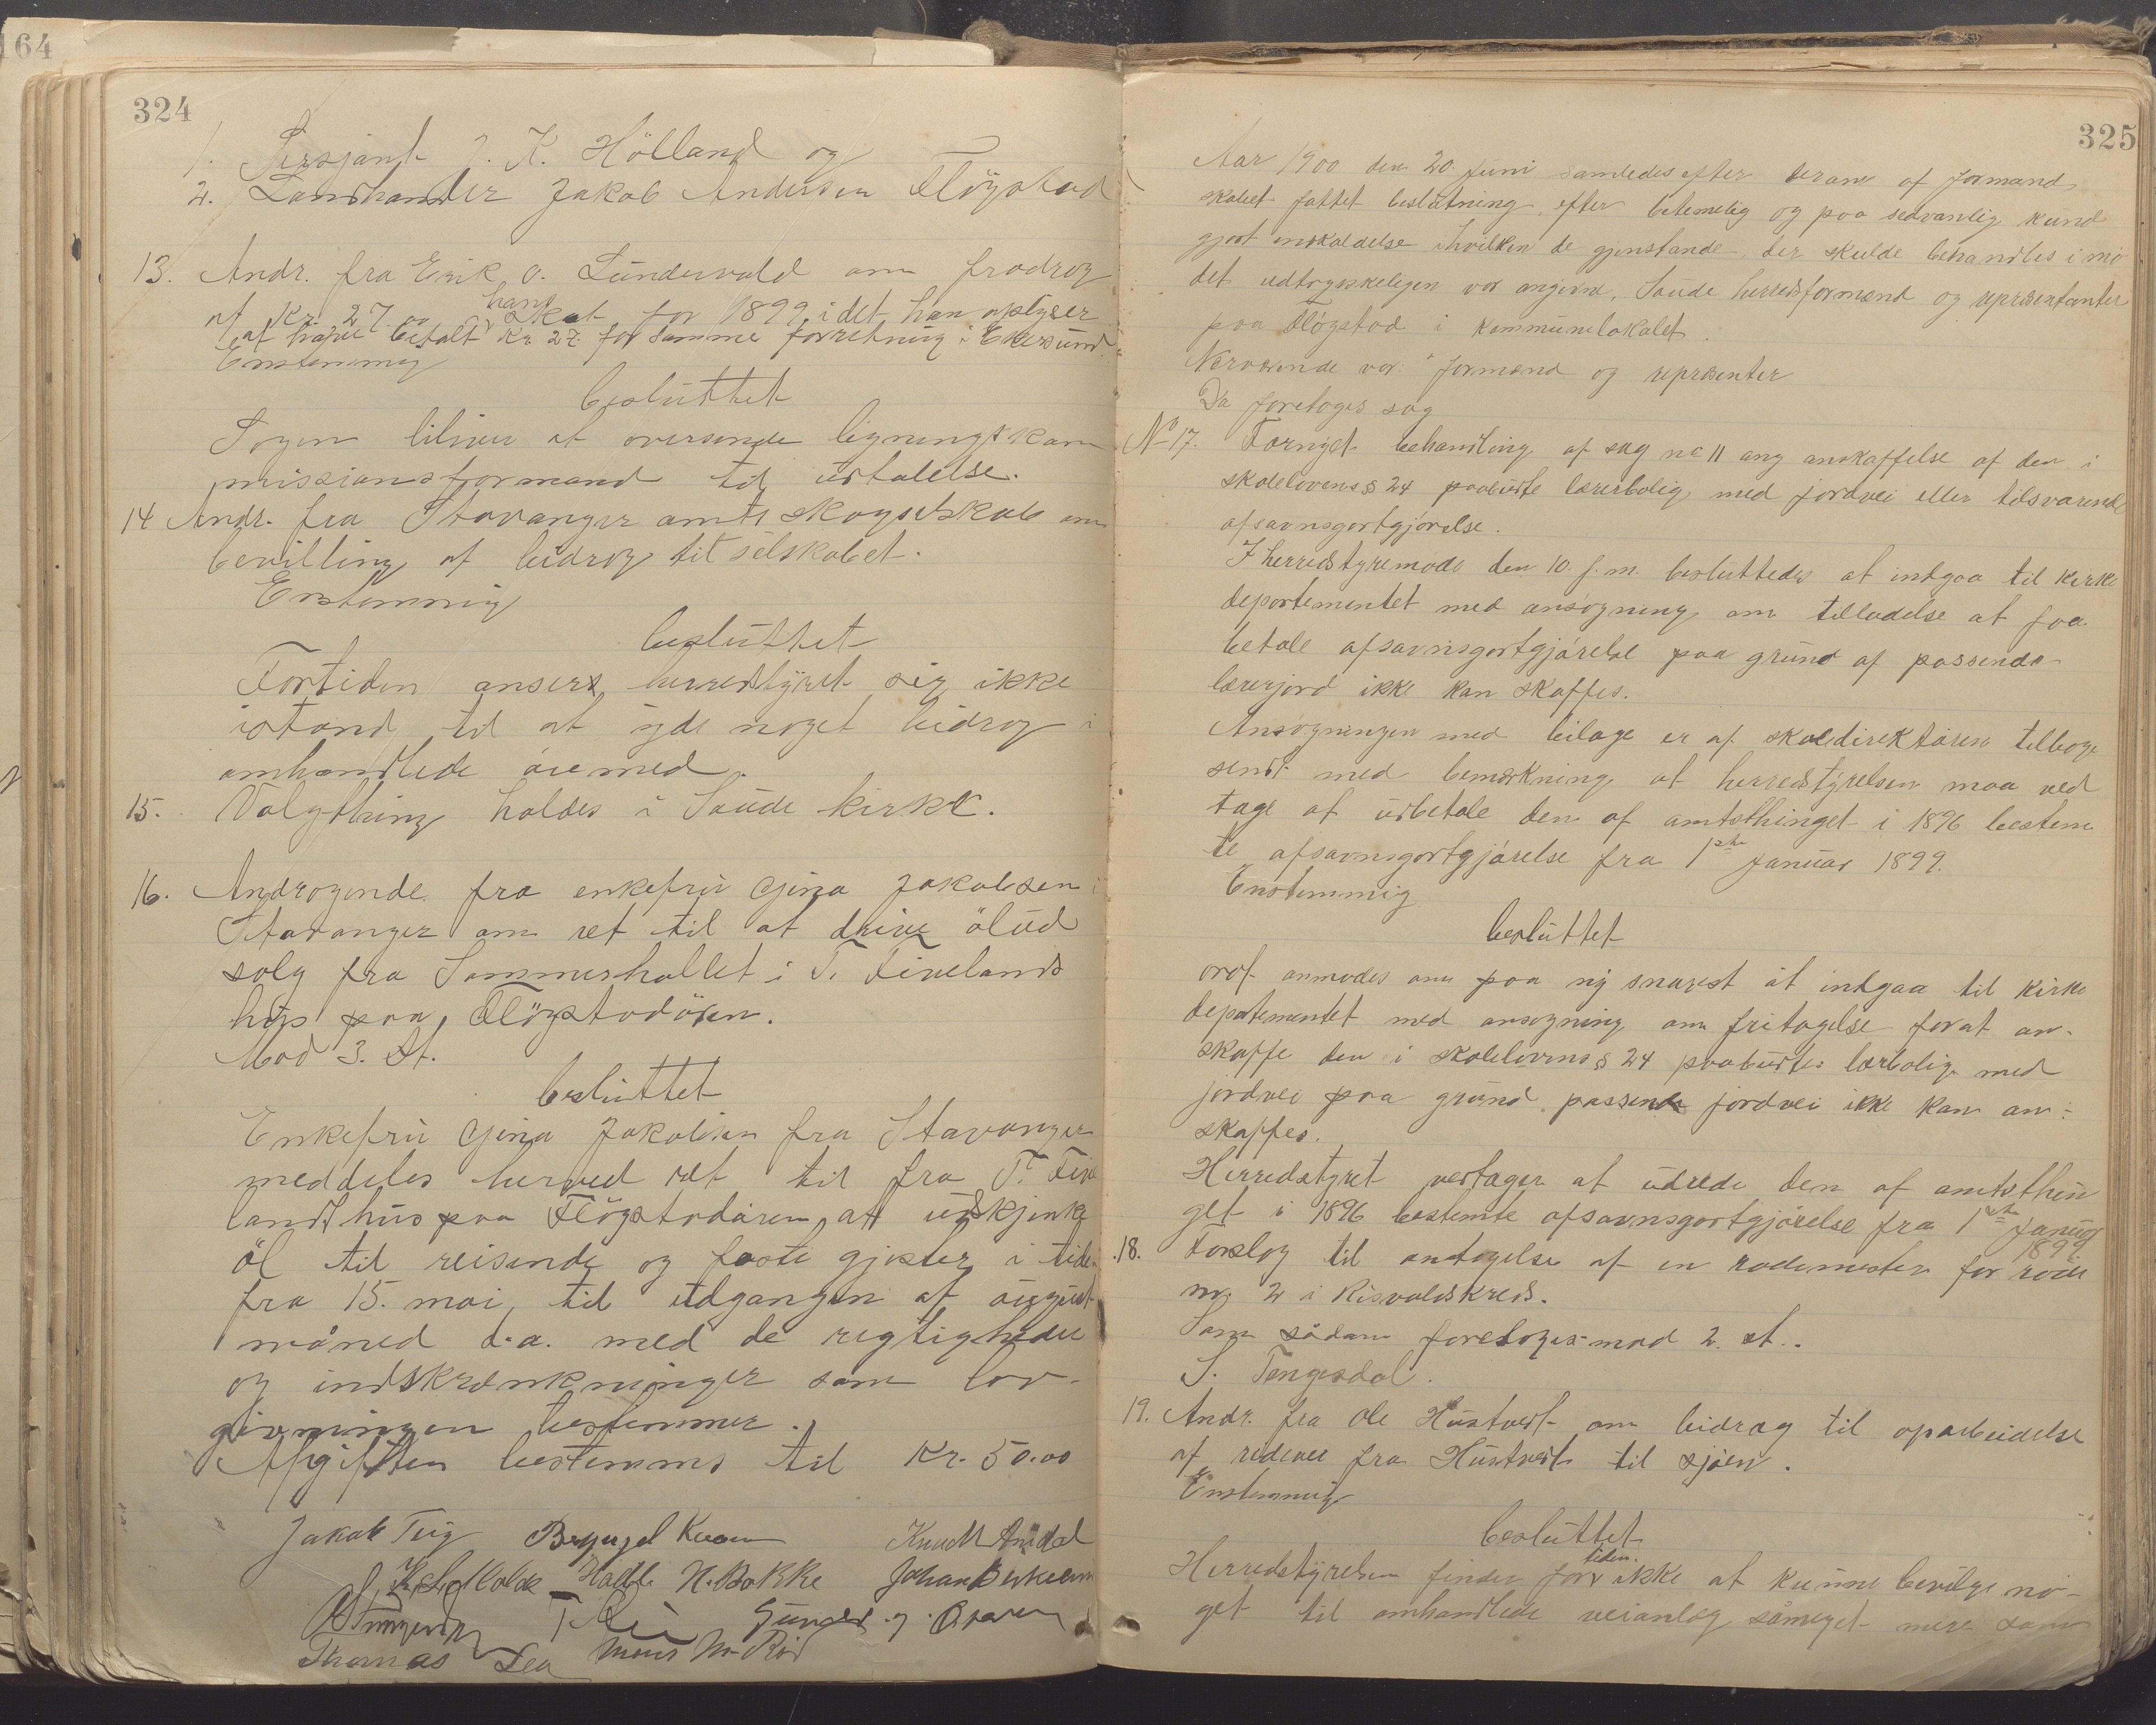 64
324
1. Sersjant J. K. Hölland og
2. Landhandler Jakob Andersen Flögstad
13. Andr. fra Erik O. Lundevold om fradrag
af Kr. 27.00 hans skat for 1899 idet han oplyser
at have betalt Kr 27 for samme forretning i Ekersund.
Enstemmig
besluttet
Sagen bliver at oversende ligningskom
missionsformand til udtalelse.
14 Andr. fra Stavanger amts skogselskab om
bevilling af bidrag til selskabet.
Enstemmig
besluttet
Fortiden ansees herredstyret sig ikke
istand til at yde noget bidrag i
omhandlede øiemed.
15. Valgthing holdes i Saude kirke.
16. Andragende fra enkefru Gina Jakobsen i
Stavanger om ret til at drive ölud
salg fra Sommerhallet i T. Fivelands
hus paa Flögstadören.
Mod 3. St.
besluttet
Enkefru Gina Jakobsen fra Stavanger
meddeles herved ret til fra T. Five
lands hus paa Flögstadören at udskjenke
öl til reisende og faste gjester i tiden
fra 15. mai til udgangen af august
måned d.a. med de rigtigheder
og indskrænkninger som lov-
givningen bestemmer.
Afgiften bestemmes til Kr. 50.00
Jakob Teig Knudt Årsdal
N. Bakke Johan Birkeland
Gunder J.
Thomas Lea Mons M. Röd
325
Aar 1900 den 20. Juni samledes efter derom af formand
skabet fattet beslutning, efter betimelig og paa sedvanlig kund
gjort indkaldelse i hvilken de gjenstande der skulde behandles i mö
det udtrykkeligen var angivne, Saude herredsformænd og repræsentanter
paa Flögstad i kommunelokalet.
Nærværende var: formænd og repræsenter
Da foretoges sag
No 17. Fornyet behandling af sag no 11 ang anskaffelse af den i
skolelovens § 24 paabudte lærerbolig med jordvei eller tilsvarende
afsavnsgodtgjörelse.
I herredstyremöde den 10. f.m. besluttedes at indgaa til kirke
departementet med ansögning om tilladelse at faa
betale afsavnsgodtgjörelse paa grund af passende
lærerjord ikke kan skaffes.
Ansögningen med bilage er af skoledirektören tilbage
sendt med bemærkning at herredstyrelsen maa ved
tage at udbetale den af amtsthinget i 1896 bestem
te afsavnsgodtgjörelse fra 1ste Januar 1899.
Enstemmig
besluttet
ordf. anmodes om paa ny snarest at indgaa til kirke
departementet med ansogning om fritagelse forat an-
skaffe den i skolelovens § 24 paabudte lærbolig med
jordvei paa grund passende jordvei ikke kan an-
skaffes.
Herredstyret vedtager at udrede den af amtsthin
get i 1896 bestemte afsavnsgodtgjörelse fra 1ste Januar
1899.
18. Forslag til antagelse af en rodemester for rode
no. 2 i Risvoldskreds.
Som sådan foretoges mod 2. st..
S. Tengesdal.
19. Andr. fra Ole Hustveit om bidrag til oparbeidelse
af ridevei fra Hustveit til sjöen.
Enstemmig
besluttet
Herredstyrelsen finder for tiden ikke at kunne bevilge no-
get til omhandlede veianlæg såmeget mere som